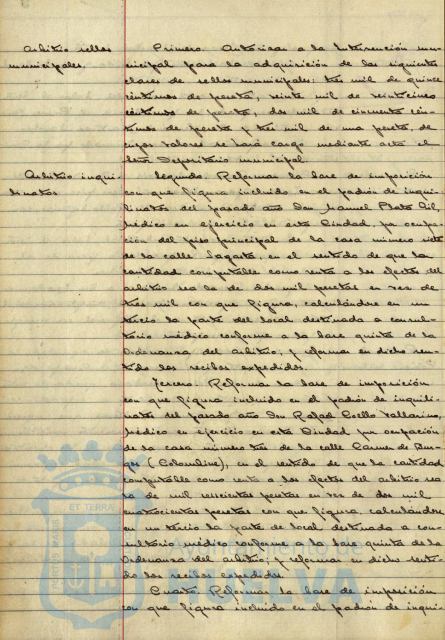 Arbitrio sellos
municipales.
Primero. Autorizar a la Intervención mu-
nicipal para la adquisición de las siguientes
clases de sellos municipales: tres mil de quince
céntimos de peseta, veinte mil de veinticinco
céntimos de peseta, dos mil de cincuenta cén-
timos de peseta y tres mil de una peseta, de
cuyos valores se hará cargo mediante acta el
señor Depositario municipal.
Arbitrio inqui-
linatos
Segundo. Reformar la base de imposición
con que figura incluido en el padrón de inqui-
linatos del pasado año Don Manuel Plata Gil,
Médico en ejercicio en esta Ciudad, por ocupa-
ción del piso principal de la casa número siete
de la calle Sagasta, en el sentido de que la
cantidad computable como renta a los efectos del
arbitrio sea la de dos mil pesetas en vez de
tres mil con que figura, calculándose en un
tercio la parte del local destinada a consul-
torio médico conforme a la base quinta de la
Ordenanza del arbitrio, y reformar en dicho sen-
tido los recibos expedidos.
Tercero. Reformar la base de imposición
con que figura incluido en el padrón de inquili-
natos del pasado año Don Rafael Coello Vallarino,
Médico en ejercicio en esta Ciudad por ocupación
de la casa número tres de la calle Carmen de Bur-
gos (Colombine), en el sentido de que la cantidad
computable como renta a los efectos del arbitrio sea
la de mil seiscientas pesetas en vez de dos mil
cuatrocientas pesetas con que figura, calculándose
en un tercio la parte de local destinada a con-
sultorio médico conforme a la base quinta de la
Ordenanza del arbitrio, y reformar en dicho senti-
do los recibos expedidos.
Cuarto. Reformar la base de imposición
con que figura incluido en el padrón de inqui-
PORTUS MARIS
ET TERRAE
Ayuntamiento de
HUELVA